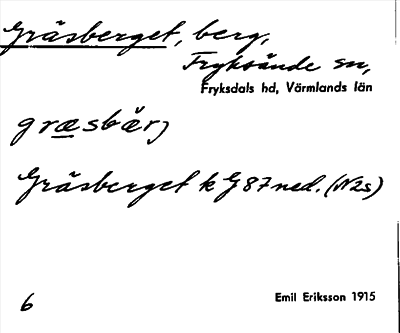 Gräsberget, berg,
Fryksände sn,
Fryksdals hd, Värmlands län
græsbär)
Gräsberget k G 87 ned. (N2s)
6
Emil Eriksson 1915